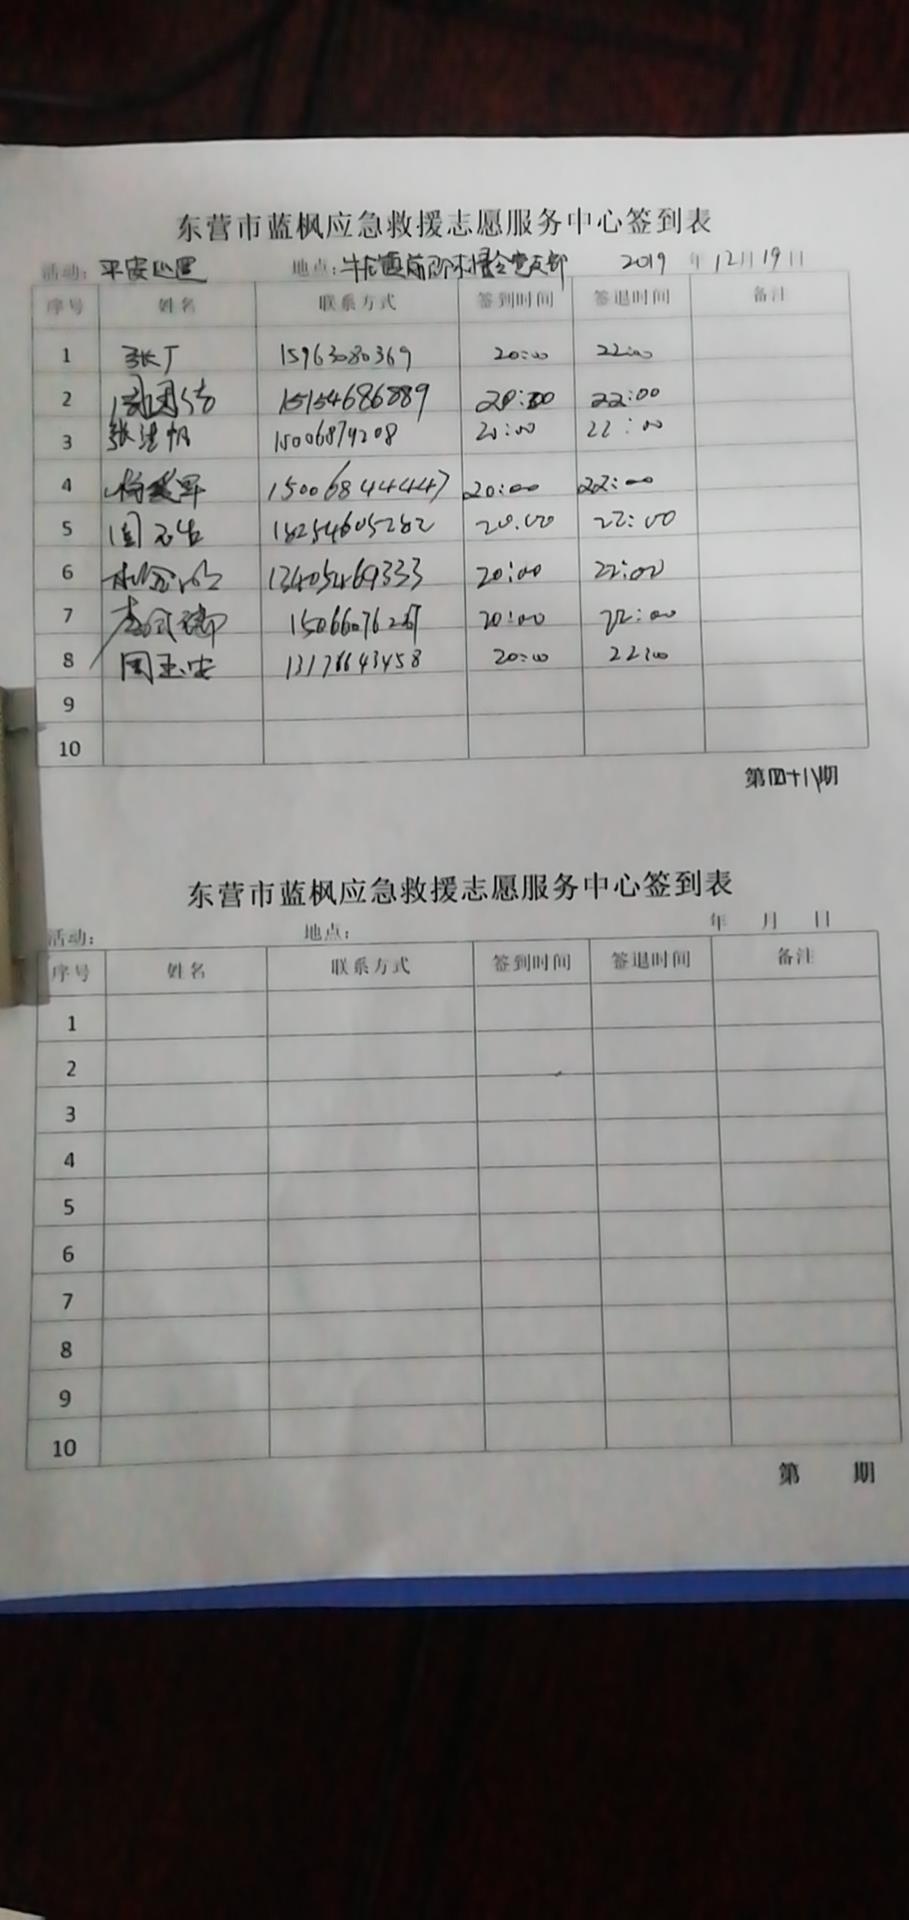 东营市蓝枫应急救援志愿服务中心签到表
活动：平安巡逻 地点： 2019年12月19日
序号 姓名 联系方式 签到时间 签退时间 备注
1 张丁 15963080369 20:00 22:00
2 15154686889 20:00 22:00
3 15006874208 20:00 22:00
4 15006844447 20:00 22:00
5 18254605282 20:00 22:00
6 13405469333 20:00 22:00
7 20:00 22:00
8 20:00 22:00
9
10
第四十八期
东营市蓝枫应急救援志愿服务中心签到表
活动： 地点： 年 月 日
序号 姓名 联系方式 签到时间 签退时间 备注
1
2
3
4
5
6
7
8
9
10
第 期